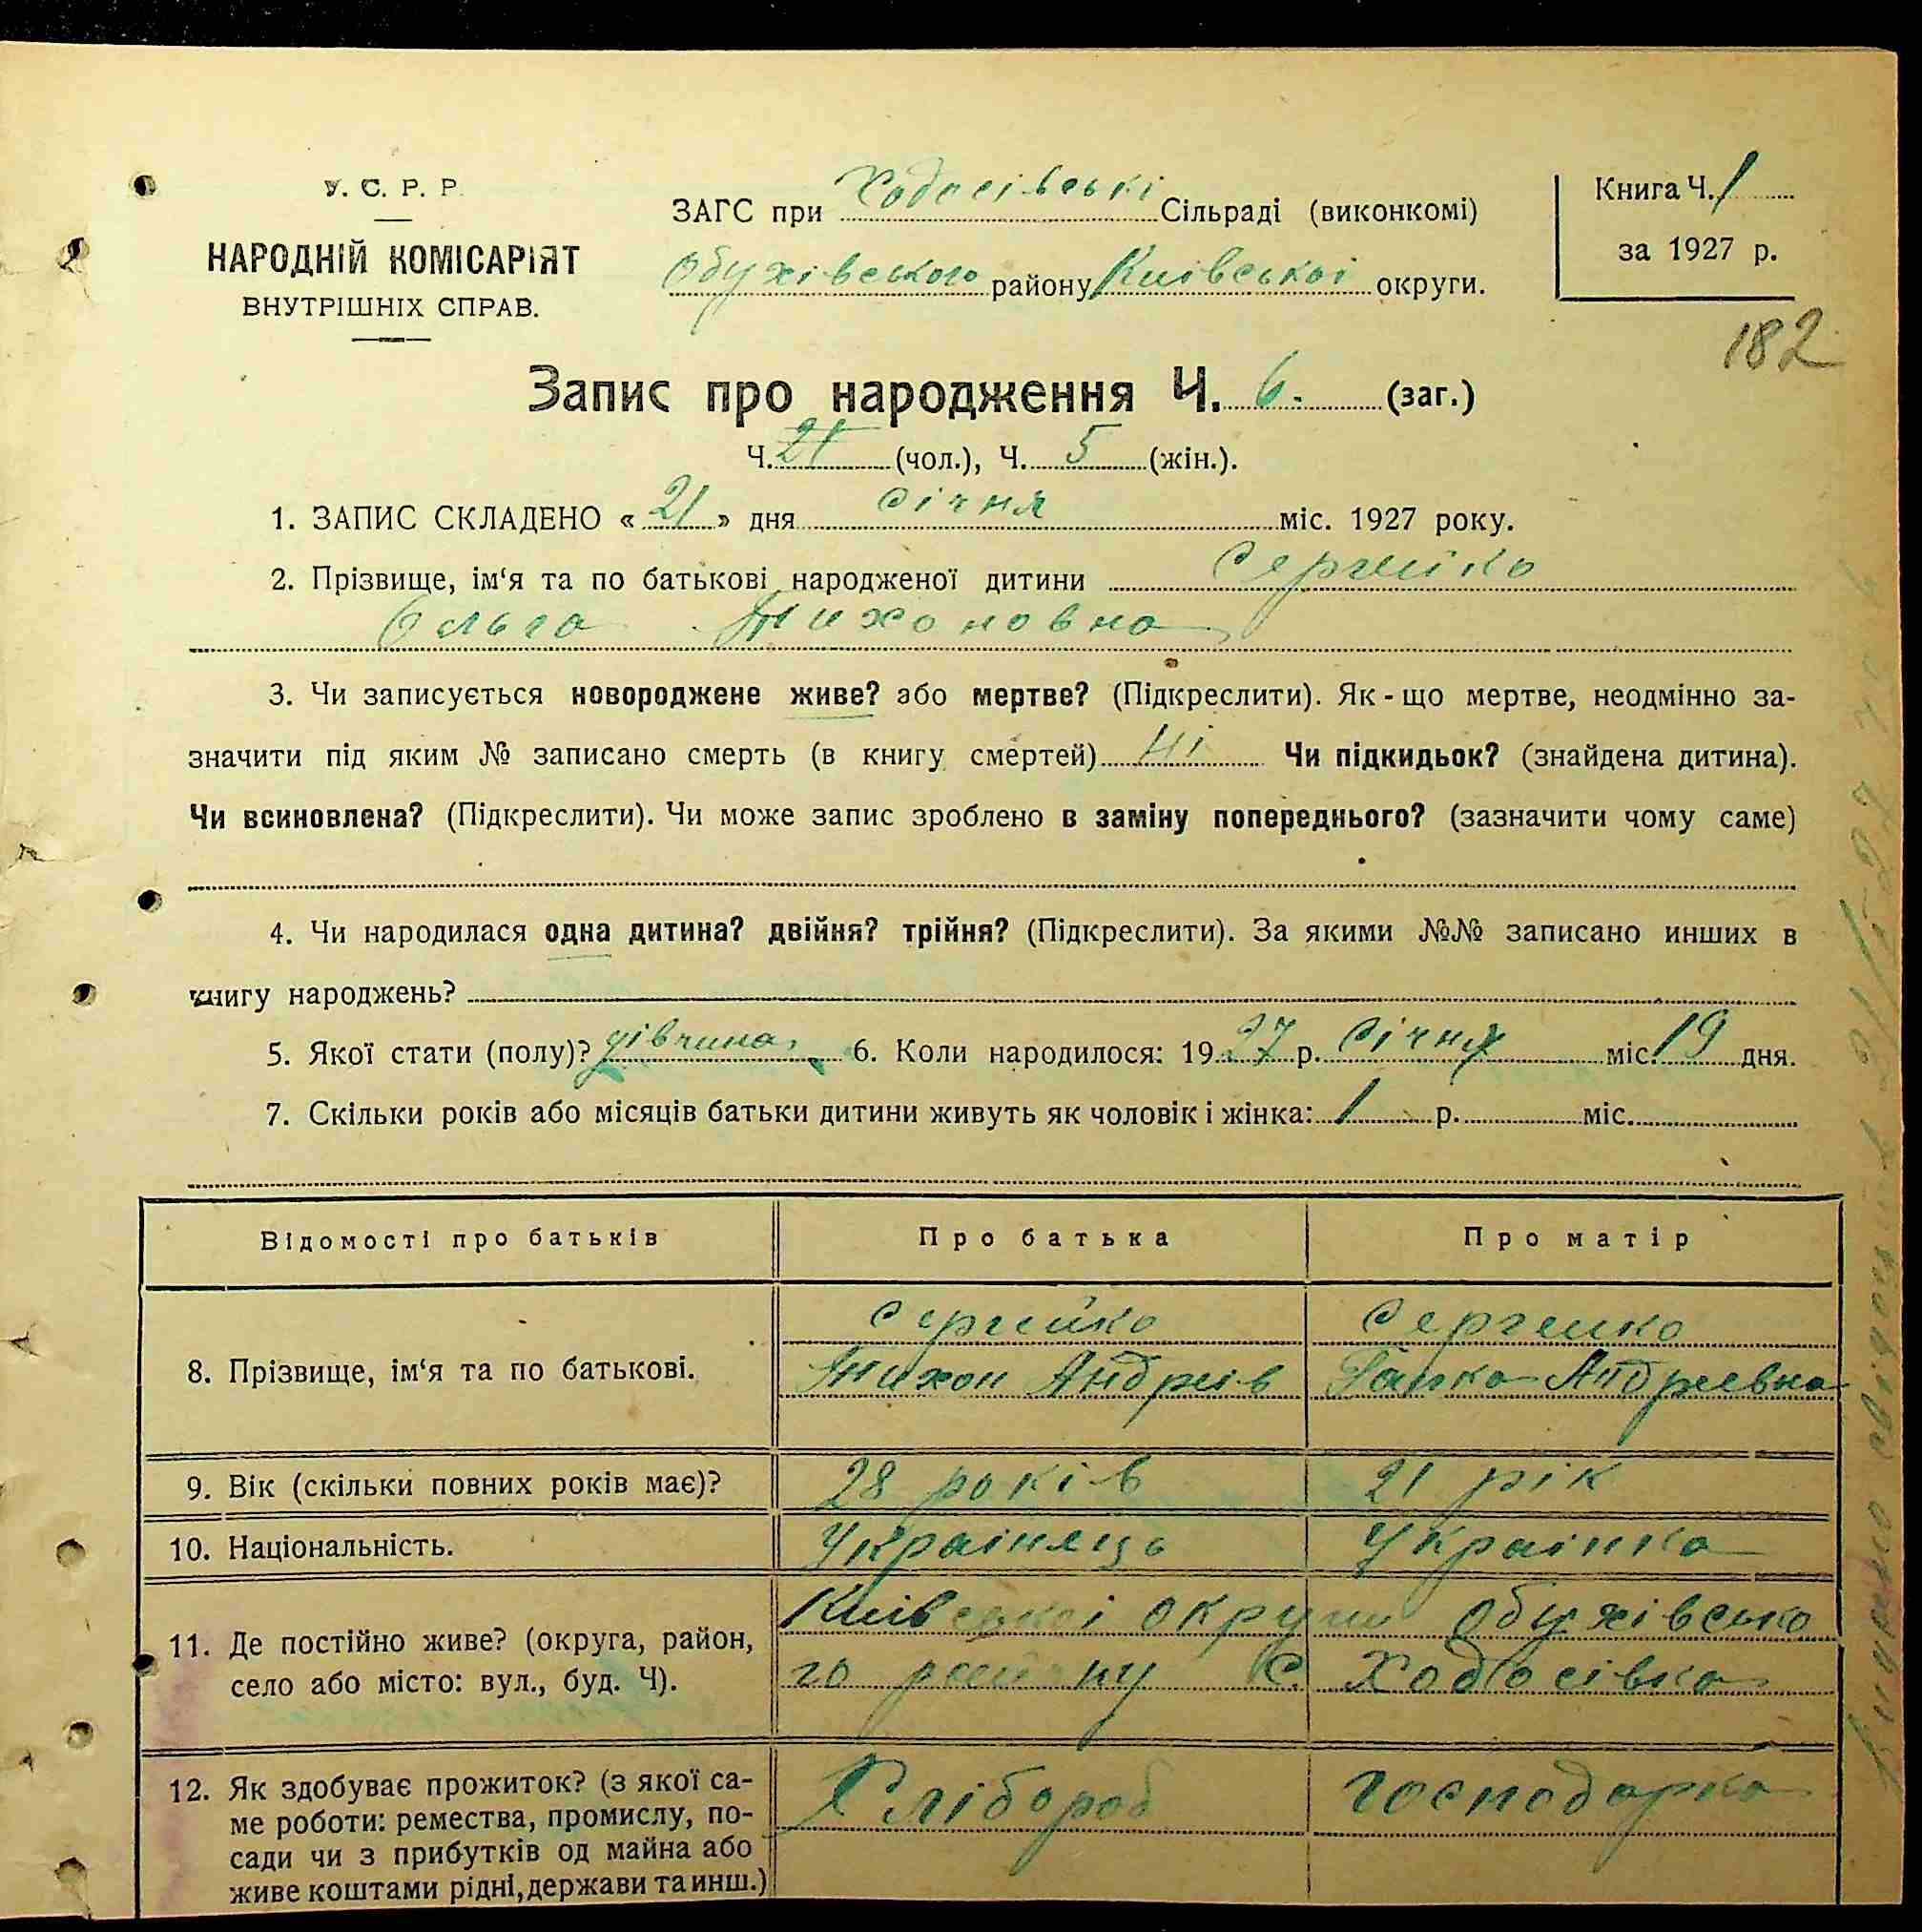 У. С. Р. Р.
НАРОДНІЙ КОМІСАРІЯТ
ВНУТРІШНІХ СПРАВ.
ЗАГС при Ходосівські Сільраді (виконкомі)
Обухівського району Київськоі округи.
Книга Ч. 1
за 1927 р.
182
Запис про народження Ч. 6. (заг.)
Ч. 21 (чол.), Ч. 5 (жін.).
1. ЗАПИС СКЛАДЕНО « 21 » дня січня міс. 1927 року.
2. Прізвище, ім‘я та по батькові народженої дитини Сергейко
Ольга Тихоновна
3. Чи записується новороджене живе? або мертве? (Підкреслити). Як-що мертве, неодмінно за-
значити під яким № записано смерть (в книгу смертей) Ні Чи підкидьок? (знайдена дитина).
Чи всиновлена? (Підкреслити). Чи може запис зроблено в заміну попереднього? (зазначити чому саме)
4. Чи народилася одна дитина? двійня? трійня? (Підкреслити). За якими №№ записано инших в
книгу народжень?
5. Якої стати (полу)? дівчина 6. Коли народилося: 19 27 р. Січня міс. 19 дня.
7. Скільки років або місяців батьки дитини живуть як чоловік і жінка: 1 р. міс.
Відомості про батьків Про батька Про матір
8. Прізвище, ім‘я та по батькові.
Сергейко Сергейко
Тихон Андреів Гапка Андреевна
9. Вік (скільки повних років має)? 28 років 21 рік
10. Національність. Украінець Украінка
11. Де постійно живе? (округа, район,
село або місто: вул., буд. Ч).
Київськоі округи Обухівсько
го району С. Ходосівка
12. Як здобуває прожиток? (з якої са-
ме роботи: ремества, промислу, по-
сади чи з прибутків од майна або
живе коштами рідні, держави та инш.)
Хлібороб господарка